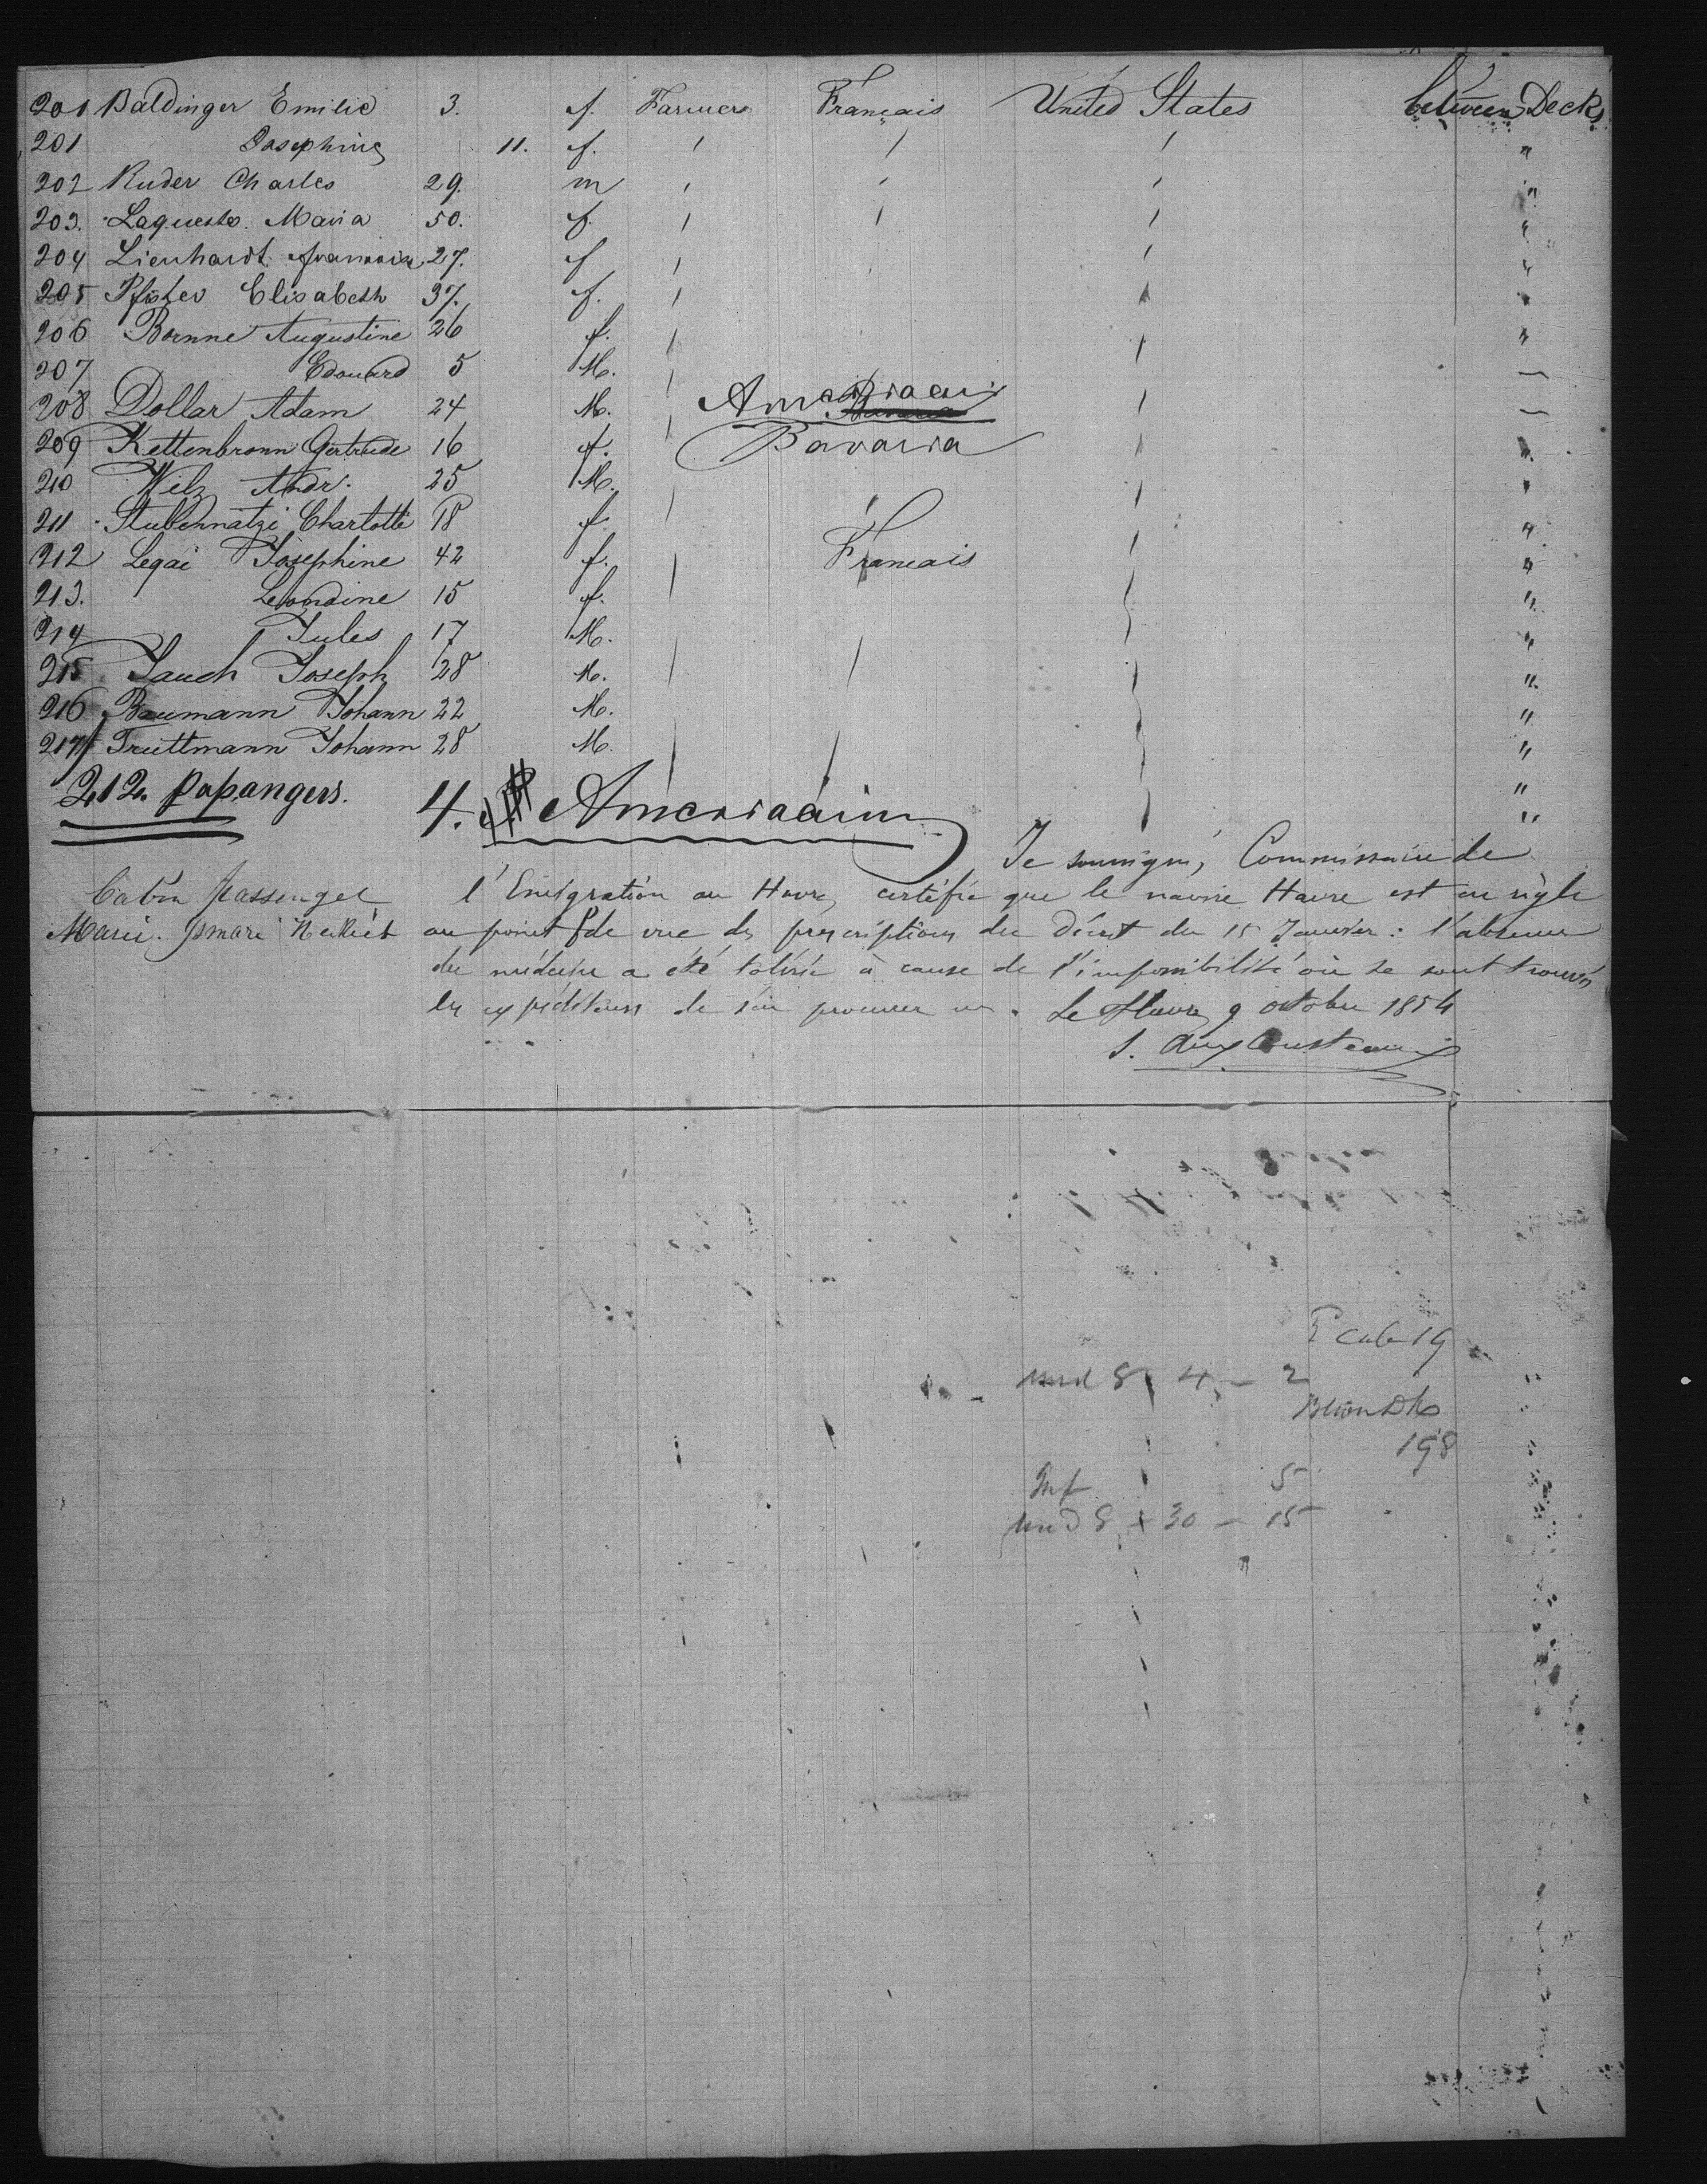 201 Baldinger Emilie 3. f. Farmers Français United States between Decks
201 Josephine 11. f. / / / "
202 Ruder Charles 29. m / / / "
203. Laqueste. Maria 50. f. / / / "
204 Lienhardt 27. f / / "
205 Pfister Elisabeth 37. f. / / "
206 Bornne Augustine 26 f. / / "
207 Edouard 5 M. /
208 Dollar Adam 24 M. / Americain /
209 Kettenbronn Gertrude 16 f. / Bavaria / "
210 Welz Andr. 25 M. / / / "
211 Stubennatzi Charlotte 18 f. "
212 Legai Josephine 42 f. / Francais / "
213. 15 f. "
214 Jules 17 M. "
215 Jauch Joseph 28 M. / / / "
216 Baumann Johann 22 M. "
217 Truttmann Johann 28 M. / / "
212. paſsangers. 4. Americain
Je soussigné, Commissaire de
Cabin passenger l'Emigration au Havre, certifie que le navire Havre est en règle
Marie. au point de vue des prescriptions du Décret du 15 Janvier : l'absence
du médecin a été tolérée à cause de l'impossibilité où se sont trouvés
les expéditeurs de s'en procurer un. Le Havre 9 octobre 1854
P cab 19
und 8 4 — 2
Btwn Dks
198
Inf 5
und 8 + 30 — 15